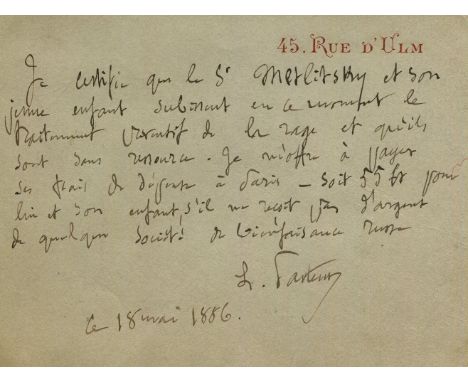 45. RUE D'ULM
Je certifie que le Sr Metlitsky et son
jeune enfant subissent en ce moment le
traitement préventif de la rage et qu'ils
sont sans ressource. Je m'offre à payer
ses frais de à Paris – soit 55 f pour
lui et son enfant, s'il ne reçoit pas d'argent
de quelque société de bienfaisance russe
L. Pasteur
Ce 18 mai 1886.